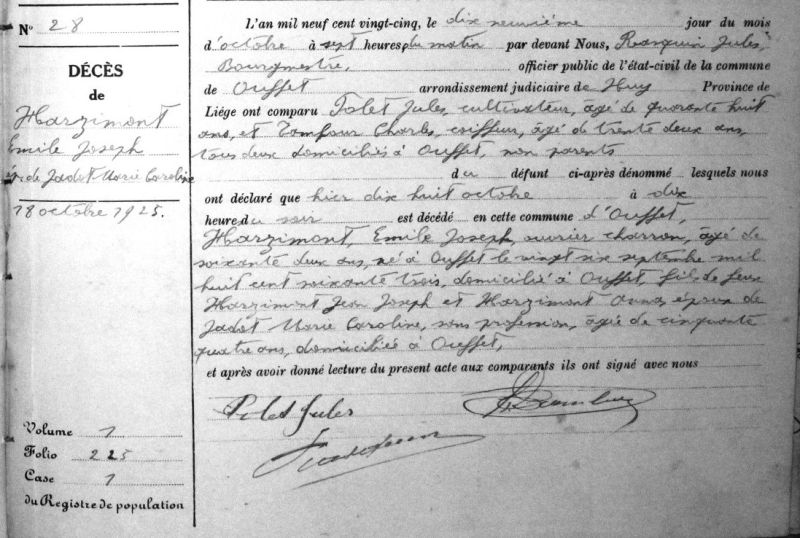 N° 28
DÉCÈS
de
Harzimont
Emile Joseph
ép. de Jadot Marie Caroline
18 octobre 1925.
Volume 1
Folio 225
Case 1
du Registre de population
L'an mil neuf cent vingt-cinq, le dix neuvième jour du mois
d'octobre à sept heures du matin par devant Nous, Renquin Jules,
Bourgmestre, officier public de l'état-civil de la commune
de Ouffet arrondissement judiciaire de Huy Province de
Liége ont comparu Polet Jules, cultivateur, âgé de quarante huit
ans, et Charles, coiffeur, âgé de trente deux ans,
tous deux domiciliés à Ouffet, non parents
du défunt ci-après dénommé lesquels nous
ont déclaré que hier dix huit octobre à dix
heure du soir est décédé en cette commune d'Ouffet,
Harzimont, Emile Joseph, ouvrier charron, âgé de
soixante deux ans, né à Ouffet le vingt six septembre mil
huit cent soixante trois, domicilié à Ouffet, fils de feus
Harzimont Jean Joseph et Harzimont Anna, époux de
Jadot Marie Caroline, sans profession, âgée de cinquante
quatre ans, domiciliée à Ouffet,
et après avoir donné lecture du présent acte aux comparants ils ont signé avec nous
Polet Jules